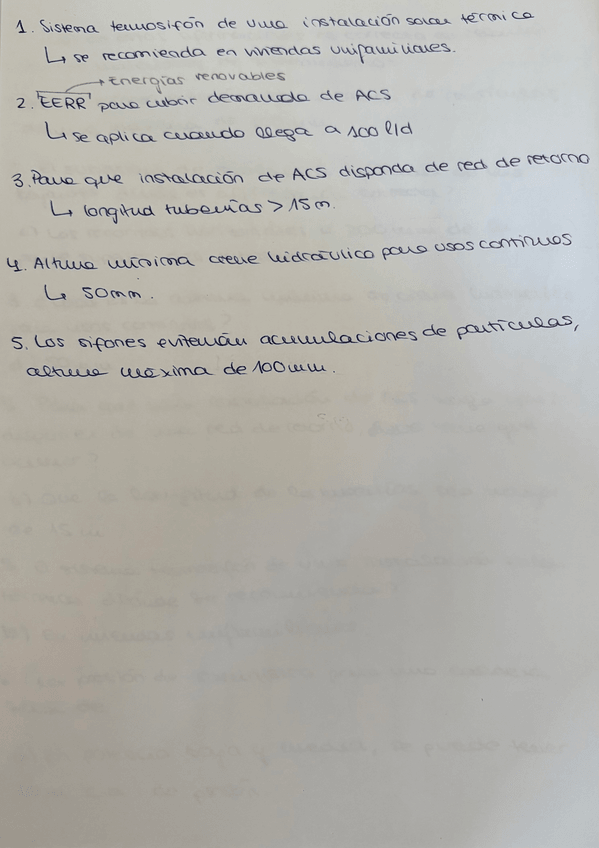 1. Sistema termosifón de una instalación solar térmica
↳ se recomienda en viviendas unifamiliares.
→ Energías renovables
2. EERR para cubrir demanda de ACS
↳ se aplica cuando llega a 100 l/d
3. Para que instalación de ACS disponda de red de retorno
↳ longitud tuberías > 15m.
4. Altura mínima cierre hidráulico para usos continuos
↳ 50mm.
5. Los sifones evitarán acumulaciones de partículas,
altura máxima de 100mm.